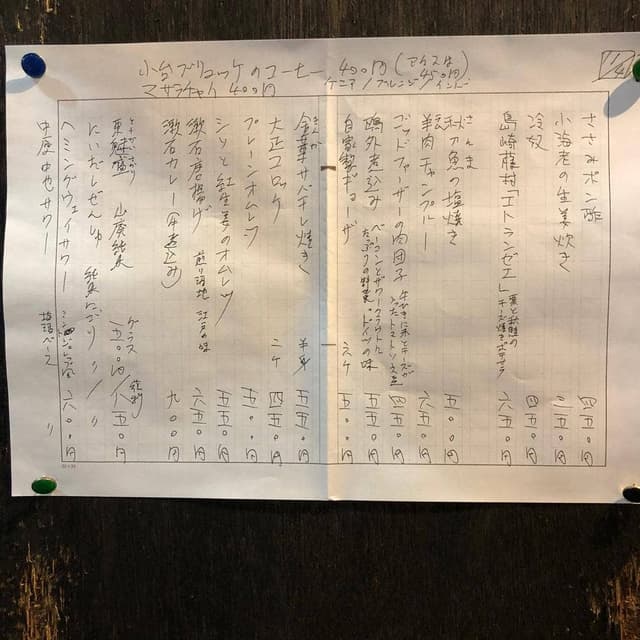 小台ブリュッケのコーヒー 400円(アイスは450円)
ケニア/ブレンド/インド
マサラチャイ 400円
ささみポン酢 四五〇円
小海老の生姜炊き 三五〇円
冷奴 四五〇円
島崎藤村「エトランゼエ」 六五〇円
秋刀魚の塩焼き 五五〇円
さんま
羊肉チャンプルー 六五〇円
ゴッドファーザーの肉団子 四五〇円
鴎外煮込み ベーコンとザワークラウト
たっぷりの野菜・ドイツの味 五五〇円
自家製ギョーザ 五ケ 五〇〇円
金華サバキレ焼き 半身 五五〇円
きんか
大正コロッケ 二ケ 四五〇円
プレーンオムレツ 五〇〇円
シソと紅生姜のオムレツ 五五〇円
漱石唐揚げ 江戸の味 六五〇円
漱石カレー(牛煮込み) 九〇〇円
山廃純米 グラス 五〇〇円/ 八五〇円
にいだしぜんしゅ 純米にごり 〃/〃
ヘミングウェイサワー 六〇〇円
中原中也サワー 〃